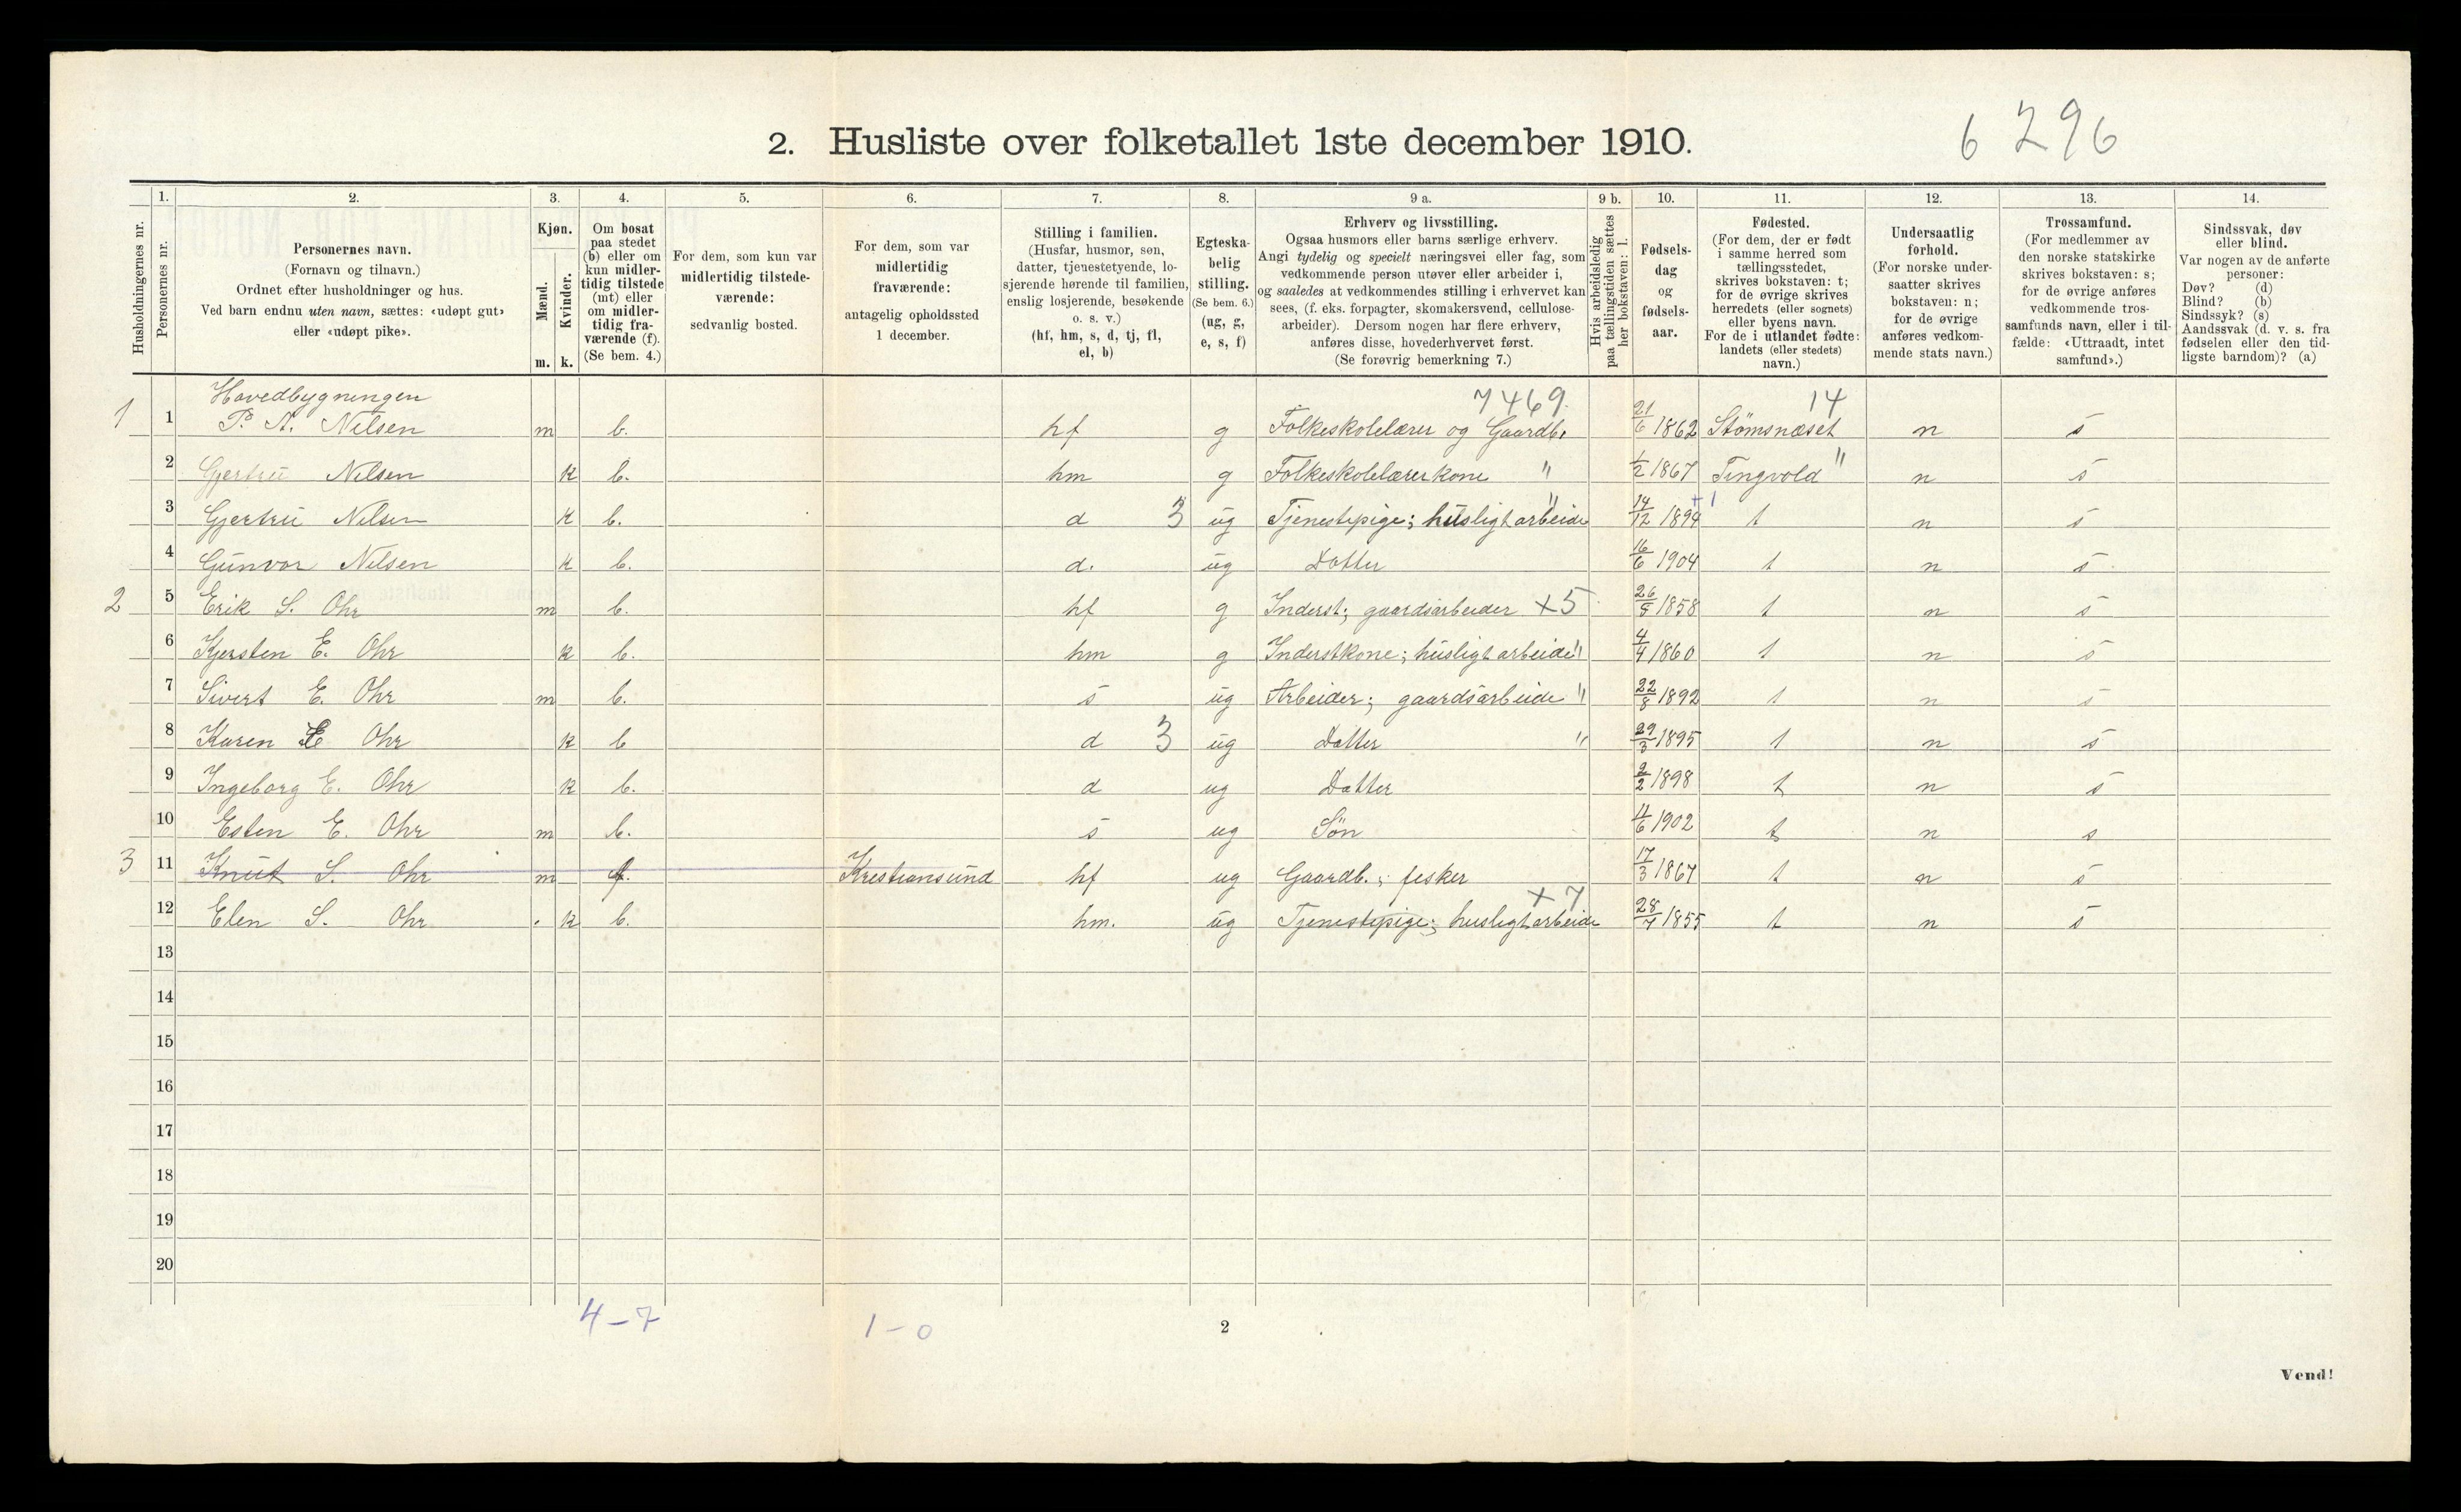 2. Husliste over folketallet 1ste december 1910.
6 296
1. 2. 3. 4. 5. 6. 7. 8. 9 a. 9 b. 10. 11. 12. 13. 14.
Husholdningernes nr.
Personernes nr.
Personernes navn.
(Fornavn og tilnavn.)
Ordnet efter husholdninger og hus.
Ved barn endnu uten navn, sættes: «udøpt gut»
eller «udøpt pike».
Kjøn.
Mænd.
Kvinder.
m. k.
Om bosat
paa stedet
(b) eller om
kun midler-
tidig tilstede
(mt) eller
om midler-
tidig fra-
værende (f).
(Se bem. 4.)
For dem, som kun var
midlertidig tilstede-
værende:
sedvanlig bosted.
For dem, som var
midlertidig
fraværende:
antagelig opholdssted
1 december.
Stilling i familien.
(Husfar, husmor, søn,
datter, tjenestetyende, lo-
sjerende hørende til familien,
enslig losjerende, besøkende
o. s. v.)
(hf, hm, s, d, tj, fl,
el, b)
Egteska-
belig
stilling.
(Se bem. 6.)
(ug, g,
e, s, f)
Erhverv og livsstilling.
Ogsaa husmors eller barns særlige erhverv.
Angi tydelig og specielt næringsvei eller fag, som
vedkommende person utøver eller arbeider i,
og saaledes at vedkommendes stilling i erhvervet kan
sees, (f. eks. forpagter, skomakersvend, cellulose-
arbeider). Dersom nogen har flere erhverv,
anføres disse, hovederhvervet først.
(Se forøvrig bemerkning 7.)
Hvis arbeidsledig
paa tællingstiden sættes
her bokstaven: l.
Fødsels-
dag
og
fødsels-
aar.
Fødested.
(For dem, der er født
i samme herred som
tællingsstedet,
skrives bokstaven: t;
for de øvrige skrives
herredets (eller sognets)
eller byens navn.
For de i utlandet fødte:
landets (eller stedets)
navn.)
Undersaatlig
forhold.
(For norske under-
saatter skrives
bokstaven: n;
for de øvrige
anføres vedkom-
mende stats navn.)
Trossamfund.
(For medlemmer av
den norske statskirke
skrives bokstaven: s;
for de øvrige anføres
vedkommende tros-
samfunds navn, eller i til-
fælde: «Uttraadt, intet
samfund».)
Sindssvak, døv
eller blind.
Var nogen av de anførte
personer:
Døv? (d)
Blind? (b)
Sindssyk? (s)
Aandssvak (d. v. s. fra
fødselen eller den tid-
ligste barndom)? (a)
Hovedbygningen 7469. 14
1 1 P. A. Nilsen m b. hf g Folkeskolelærer og Gaardb. 21/6 1862 Stømsnæset n s
2 Gjertru Nilsen k b. hm g Folkeskolelærerkone " 1/2 1867 Tingvold " n s
3 Gjertru Nilsen k b. d 3 ug Tjenestepige; husligt arbeide " 14/12 1894 + 1 t n s
4 Gunvor Nilsen k b. d. ug Datter 16/6 1904 t n s
2 5 Erik S. Ohr m b. hf g Inderst; gaardsarbeider +5 26/5 1858 t n s
6 Kjersten E. Ohr k b. hm g Inderstkone; husligt arbeide " 4/4 1860 t n s
7 Sivert E. Ohr m b. s ug Arbeider; gaardsarbeide " 22/8 1892 t n s
8 Karen E Ohr k b d 3 ug Datter " 29/3 1895 t n s
9 Ingeborg E. Ohr k b. d ug Datter 2/2 1898 t n s
10 Esten E. Ohr m b. s ug Søn 11/6 1902 t n s
3 11 Knut S. Ohr m f. Krestiansund hf ug Gaardb.; fesker 17/3 1867 t n s
+7
12 Elen S. Ohr k b. hm. ug Tjenestepige; husligt arbeide 28/7 1855 t n s
13
14
15
16
17
18
19
20
4-7 1-0
2
Vend!